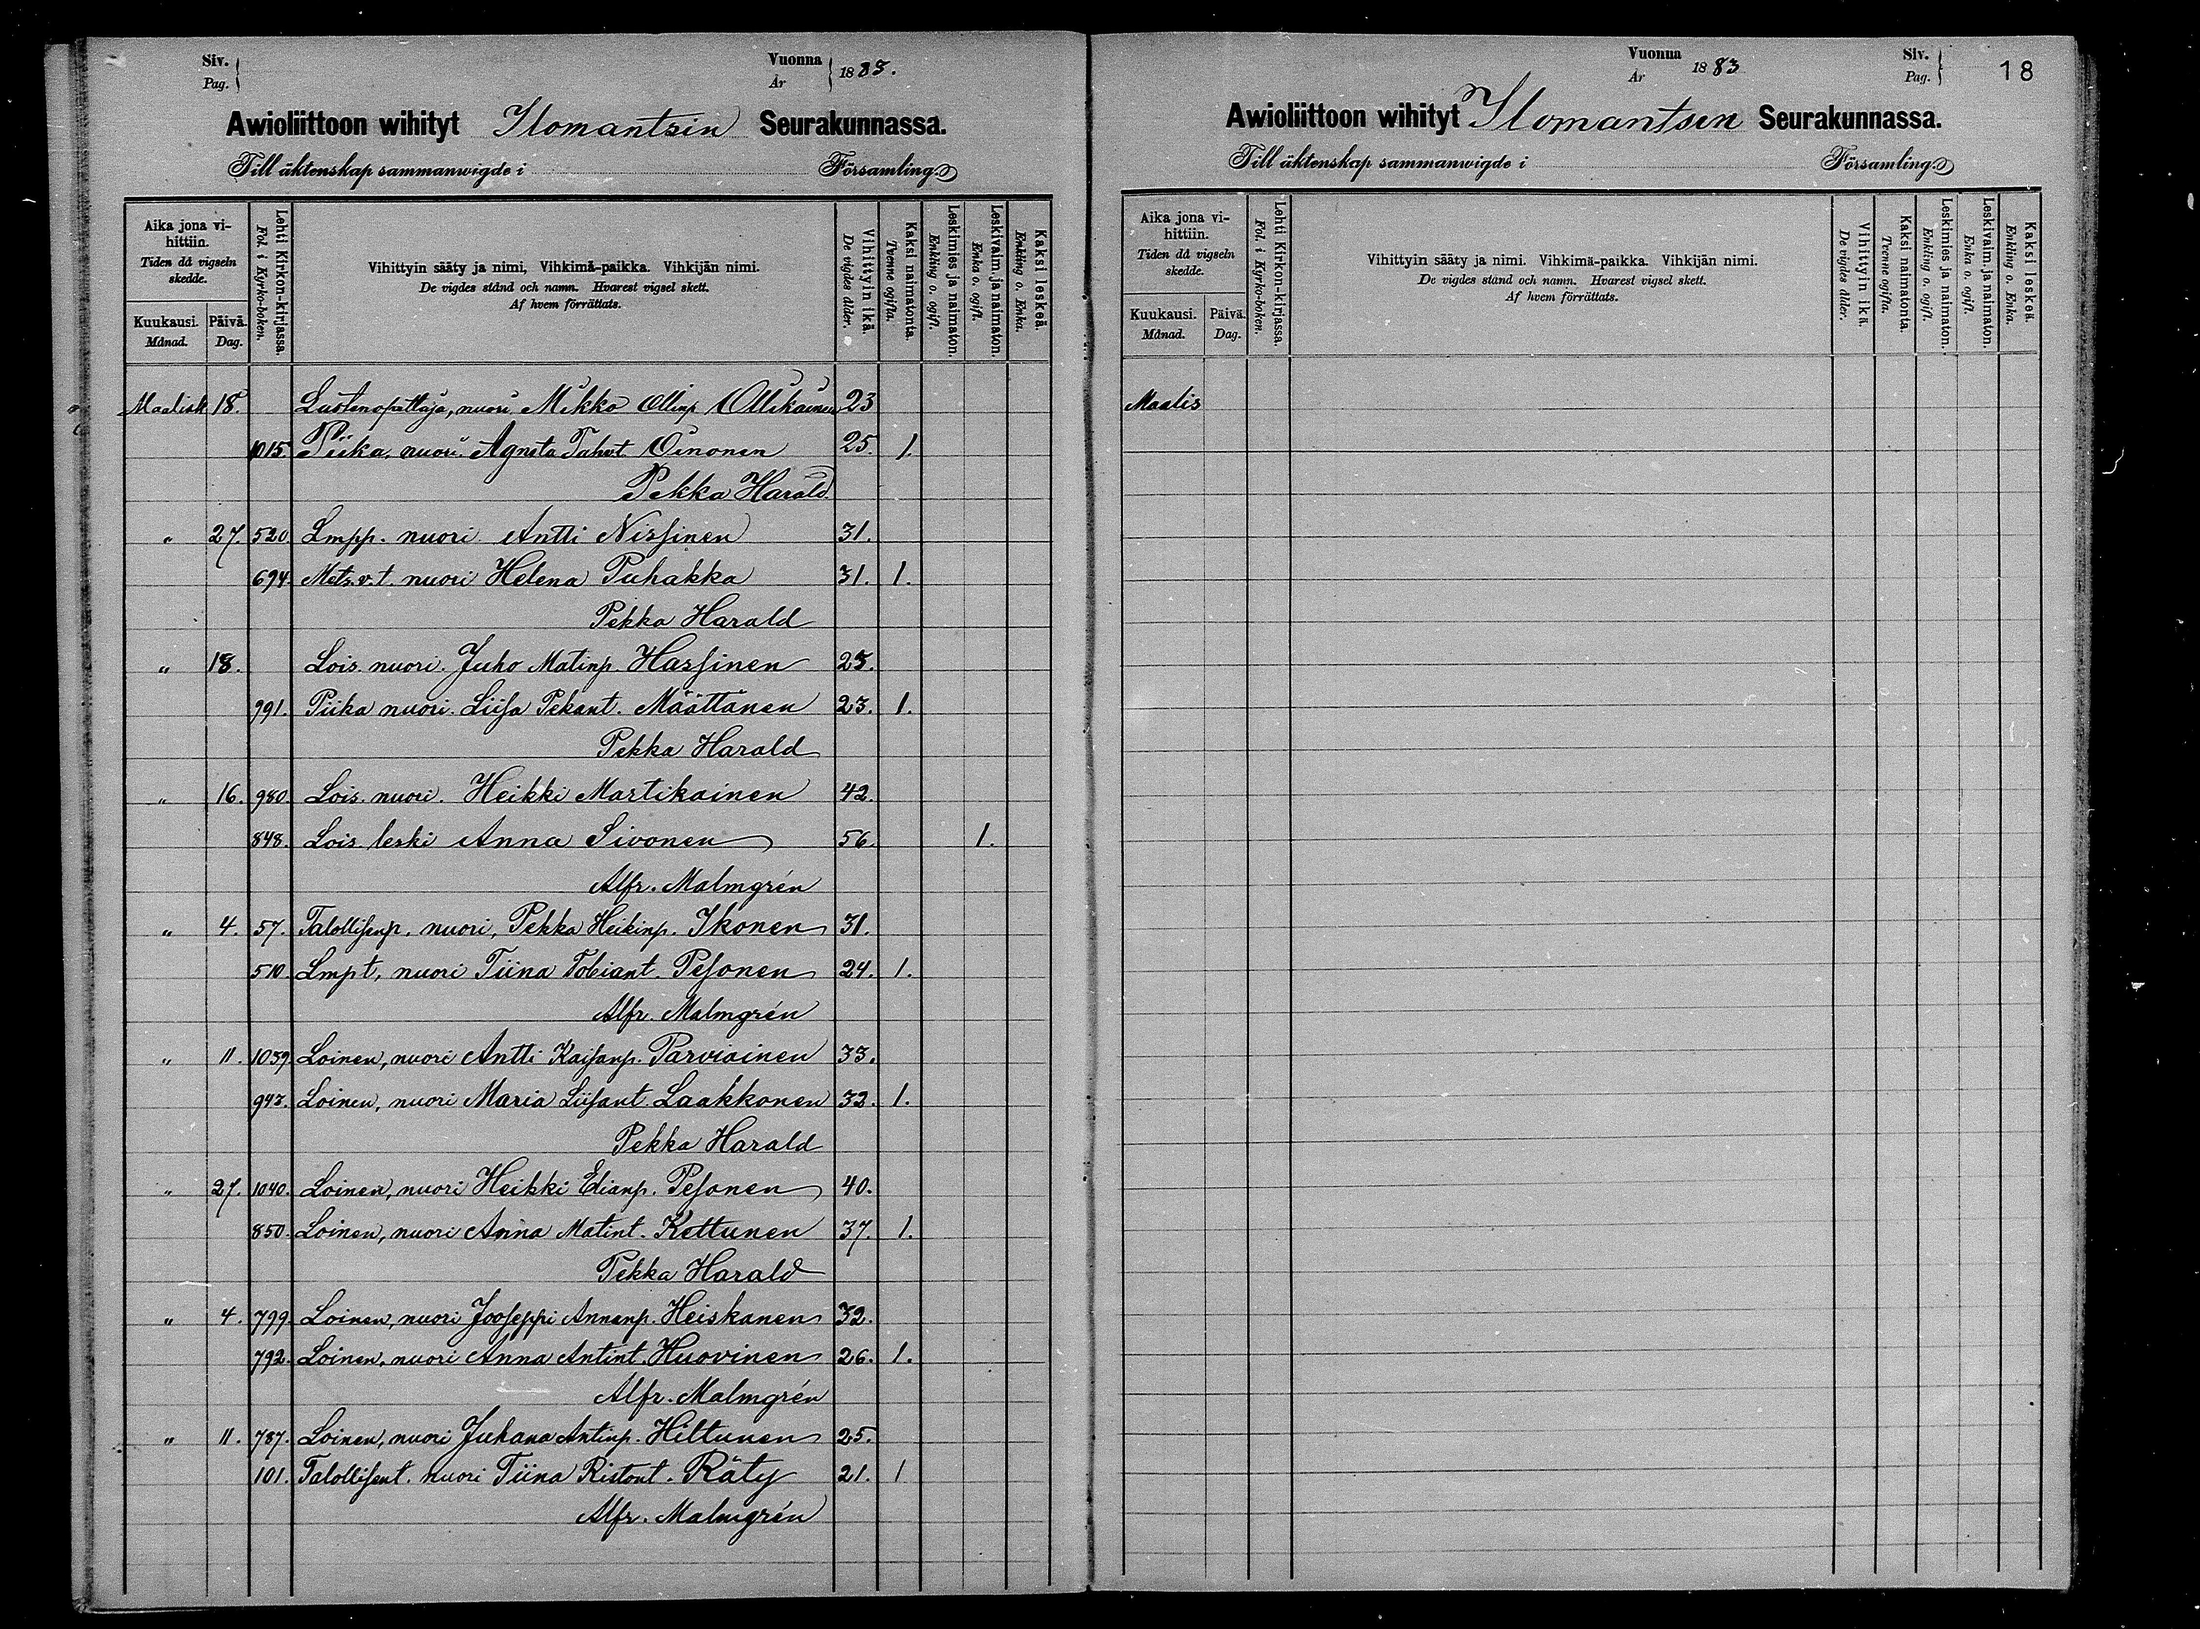 Siv.
Pag.
Vuonna
År
1883.
Awioliittoon wihityt Ilomantsin Seurakunnassa.
Till äktenskap sammanwigde i Församling.
Aika jona vihittiin.
Tiden då vigseln skedde.
Kuukausi. Månad.
Päivä. Dag.
Lehti Kirkon-kirjassa.
Fol. i Kyrko-boken.
Vihittyin sääty ja nimi, Vihkimä-paikka. Vihkijän nimi.
De vigdes stånd och namn. Hvarest vigsel skett.
Af hvem förrättats.
Vihittyin ikä.
De vigdes ålder.
Kaksi naimatonta.
Tvenne ogifta.
Leskimies ja naimaton.
Enkling o. ogift.
Leskivaim. ja naimaton.
Enka o. ogift.
Kaksi leskeä.
Enkling o. Enka.
Maalisk 18. nuori Mikko Ollinp Ollikainen 23
1015. Piika, nuori Agneta Tahvt. Oinonen 25. 1.
Pekka Harald
" 27. 520. Lmpp. nuori Antti Nissinen 31.
694. Mets.v.t. nuori Helena Puhakka 31. 1.
Pekka Harald
" 18. Lois. nuori. Juho Matinp. Hassinen 23.
991. Piika nuori. Liisa Pekant. Määttänen 23. 1.
Pekka Harald
" 16. 980. Lois. nuori. Heikki Martikainen 42.
848. Lois. leski Anna Sivonen 56. 1.
Alfr. Malmgrén
" 4. 57. Talollisenp. nuori, Pekka Heikinp. Ikonen 31.
510. Lmpt, nuori Tiina Tobiant. Pesonen 24. 1.
Alfr. Malmgrén
" 11. 1039. Loinen, nuori Antti Kaisanp. Parviainen 33.
943. Loinen, nuori Maria Liisant. Laakkonen 32. 1.
Pekka Harald
" 27. 1040. Loinen, nuori Heikki Elianp. Pesonen 40.
850. Loinen, nuori Anna Matint. Kettunen 37. 1.
Pekka Harald
" 4. 799. Loinen, nuori Jooseppi Annanp. Heiskanen 32.
792. Loinen, nuori Anna Antint. Huovinen 26. 1.
Alfr. Malmgrén
" 11. 787. Loinen, nuori Juhana Antinp. Hiltunen 25.
101. Talollisent. nuori Tiina Ristont. Räty 21. 1
Alfr. Malmgrén
Vuonna
År
1883
Siv.
Pag.
18
Awioliittoon wihityt Ilomantsen Seurakunnassa.
Till äktenskap sammanwigde i Församling.
Aika jona vihittiin.
Tiden då vigseln skedde.
Kuukausi. Månad.
Päivä. Dag.
Lehti Kirkon-kirjassa.
Fol. i Kyrko-boken.
Vihittyin sääty ja nimi. Vihkimä-paikka. Vihkijän nimi.
De vigdes stånd och namn. Hvarest vigsel skett.
Af hvem förrättats.
Vihittyin ikä.
De vigdes ålder.
Kaksi naimatonta.
Tvenne ogifta.
Leskimies ja naimaton.
Enkling o. ogift.
Leskivaim. ja naimaton.
Enka o. ogift.
Kaksi leskeä.
Enkling o. Enka.
Maalis